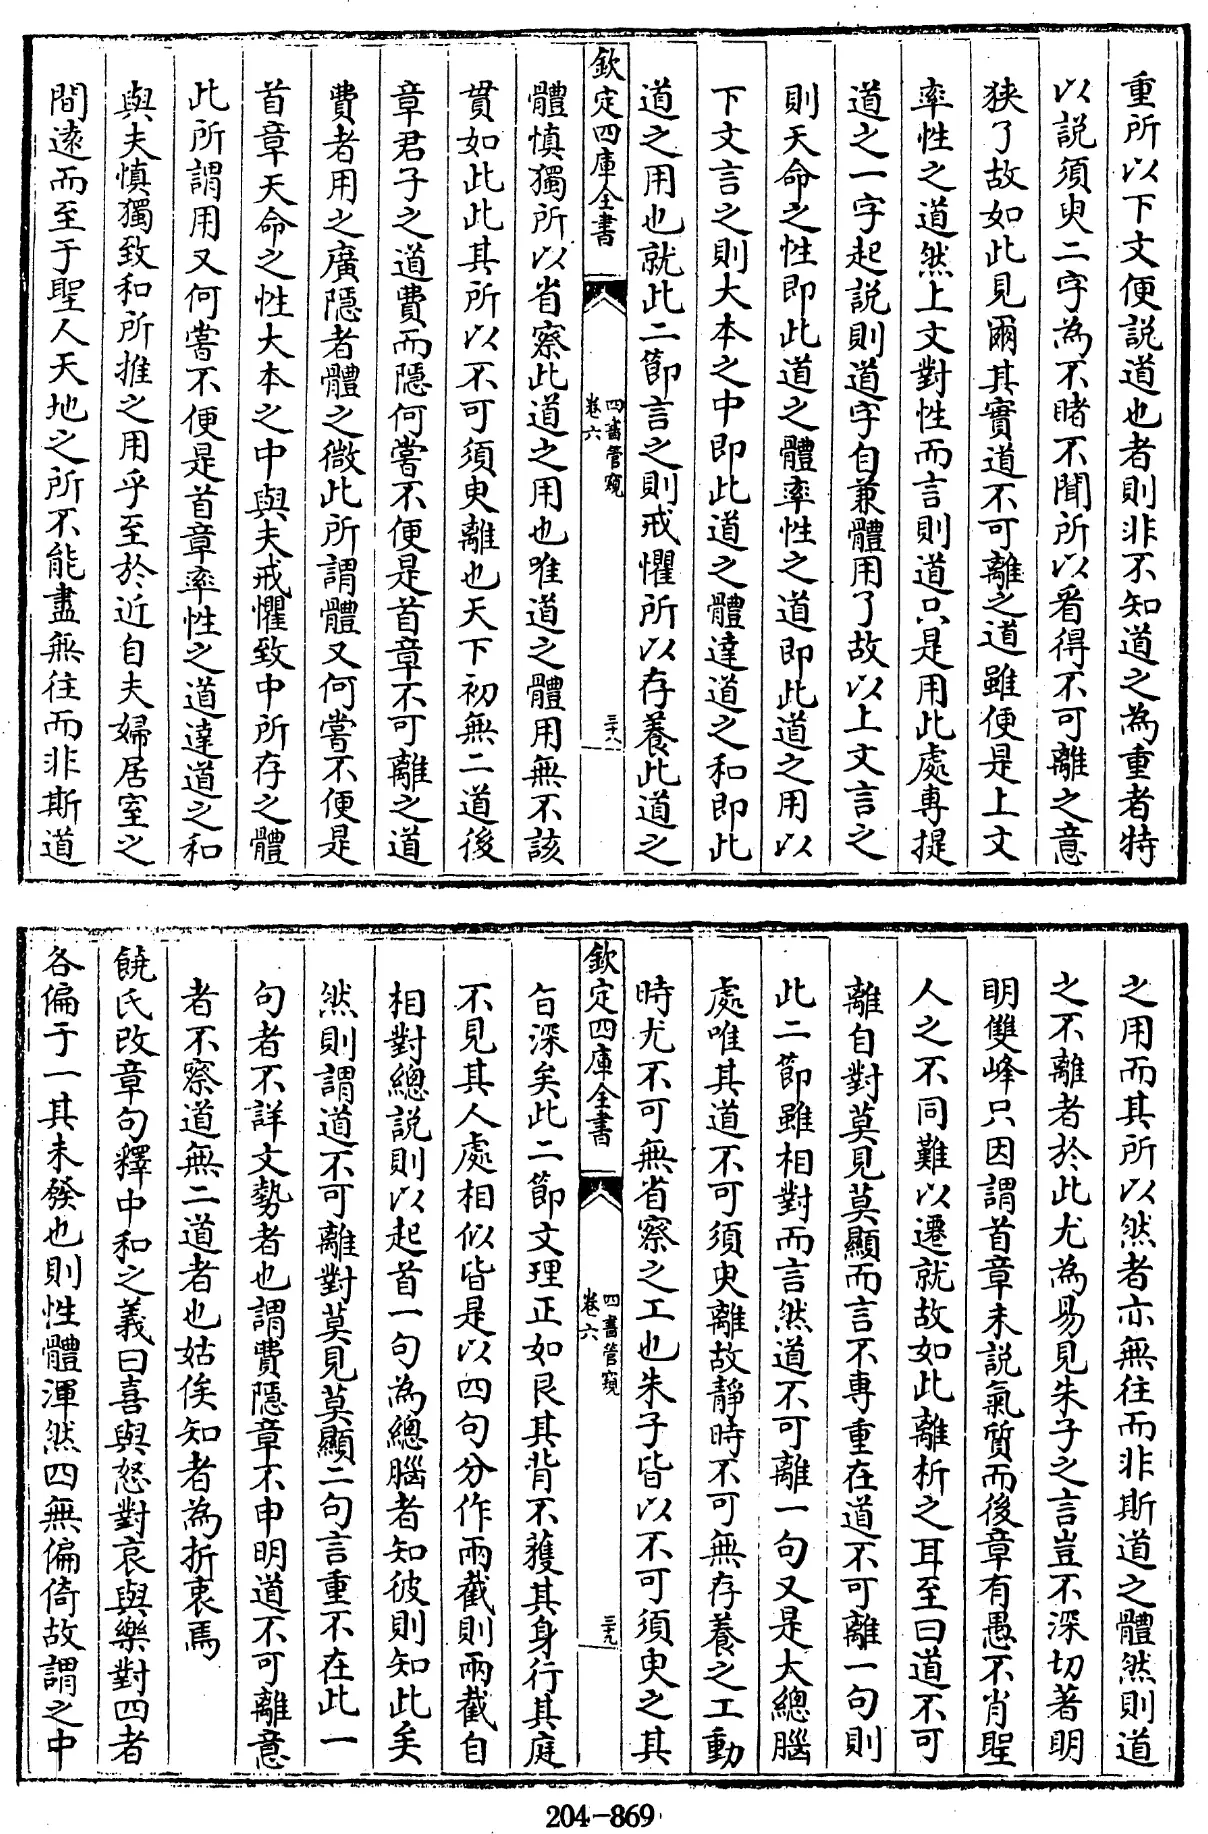 重所以下文便説道也者則非不知道之為重者特
以説須臾二字為不睹不聞所以看得不可離之意
狭了故如此見爾其實道不可離之道雖便是上文
率性之道然上文對性而言則道只是用此處專提
道之一字起説則道字自兼體用了故以上文言之
則天命之性即此道之體率性之道即此道之用以
下文言之則大本之中即此道之體達道之和即此
道之用也就此二節言之則戒懼所以存養此道之
欽定四庫全書
四書管窺
卷六
三十八
體慎獨所以省察此道之用也唯道之體用無不該
貫如此此其所以不可須臾離也天下初無二道後
章君子之道費而隠何嘗不便是首章不可離之道
費者用之廣隠者體之微此所謂體又何嘗不便是
首章天命之性大本之中與夫戒懼致中所存之體
此所謂用又何嘗不便是首章率性之道達道之和
與夫慎獨致和所推之用乎至於近自夫婦居室之
間遠而至于聖人天地之所不能盡無往而非斯道
之用而其所以然者亦無往而非斯道之體然則道
之不離者於此尤為易見朱子之言豈不深切著明
明雙峰只因謂首章未説氣質而後章有愚不肖聖
人之不同難以遷就故如此離析之耳至曰道不可
離自對莫見莫顯而言不專重在道不可離一句則
此二節雖相對而言然道不可離一句又是大總腦
處唯其道不可須臾離故靜時不可無存養之工動
時尤不可無省察之工也朱子皆以不可須臾之其
欽定四庫全書
四書管窺
卷六
三十九
旨深矣此二節文理正如艮其背不獲其身行其庭
不見其人處相似皆是以四句分作兩截則兩截自
相對總説則以起首一句為總腦者知彼則知此矣
然則謂道不可離對莫見莫顯二句言重不在此一
句者不詳文勢者也謂費隠章不申明道不可離意
者不察道無二道者也姑俟知者為折衷焉
饒氏改章句釋中和之義曰喜與怒對哀與樂對四者
各偏于一其未發也則性體渾然四無偏倚故謂之中
204-869